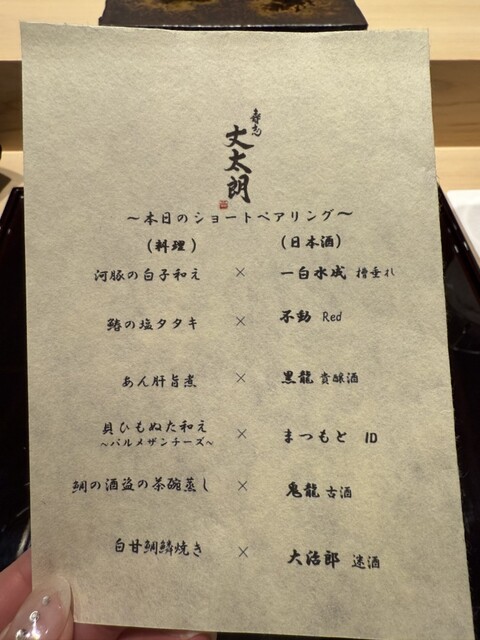 寿志
丈太朗
～本日のショートペアリング～
(料理) (日本酒)
河豚の白子和え × 一白水成 槽垂れ
鰆の塩タタキ × 不動 Red
あん肝旨煮 × 黒龍 貴醸酒
貝ひもぬた和え × まつもと ID
～パルメザンチーズ～
鯛の酒盗の茶碗蒸し × 鬼龍 古酒
白甘鯛鱗焼き × 大治郎 迷酒